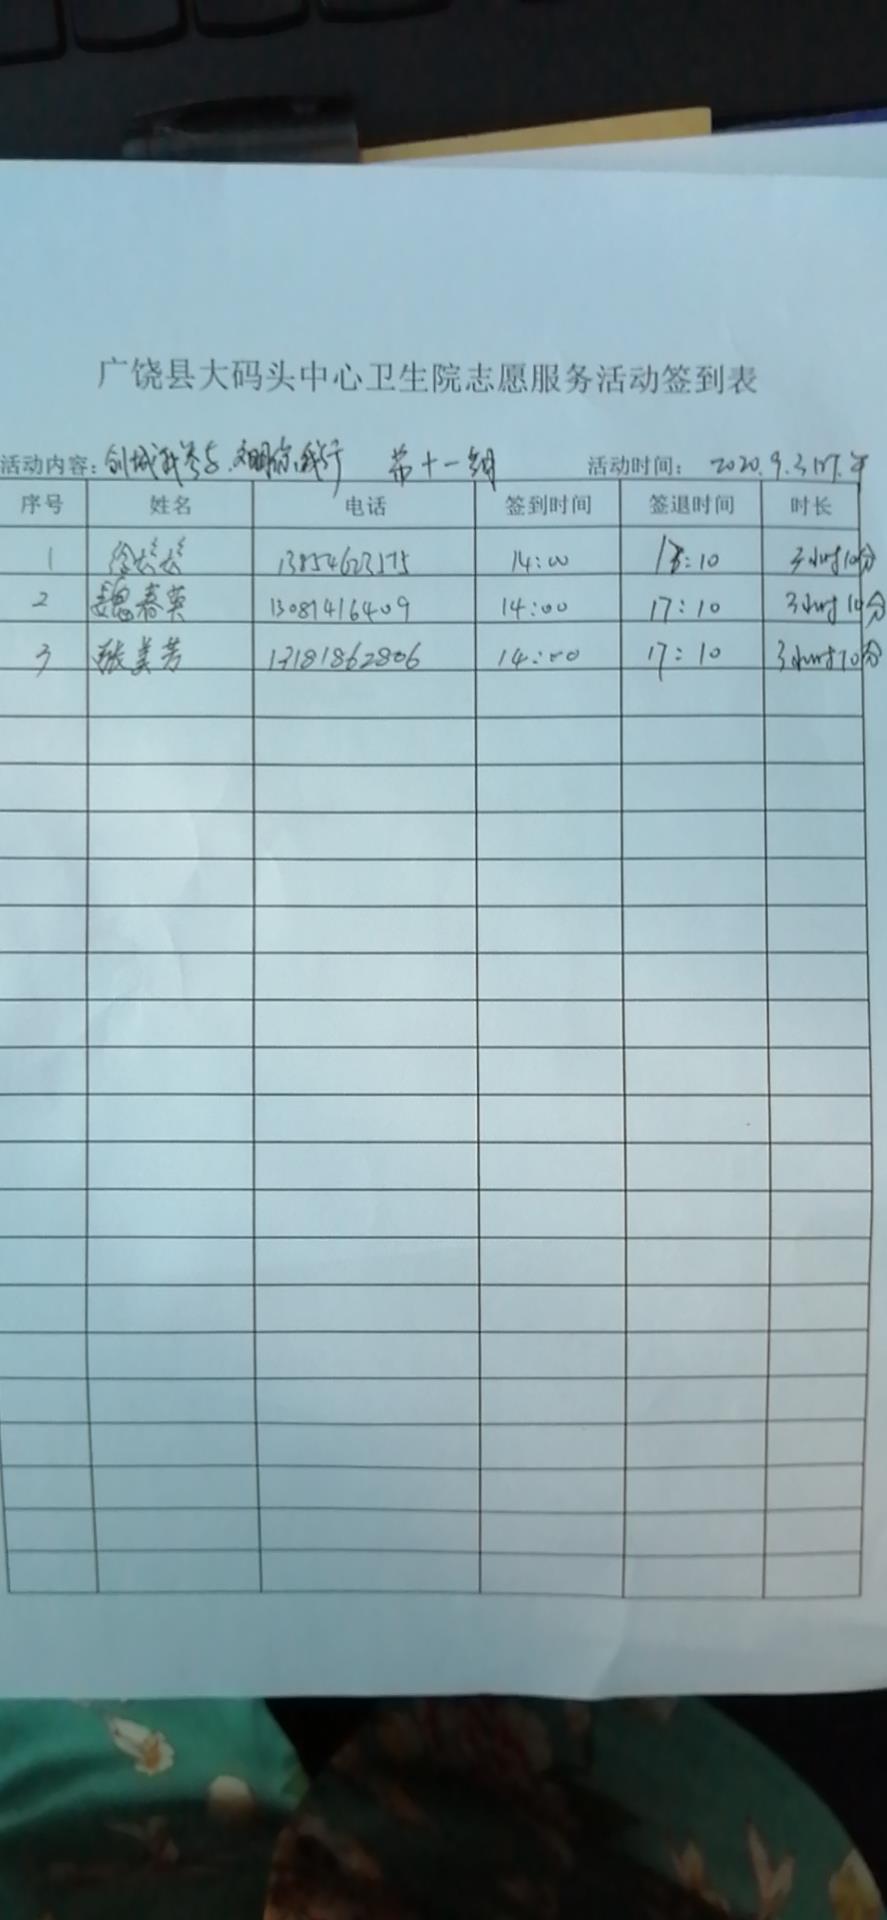 广饶县大码头中心卫生院志愿服务活动签到表
活动内容：创城我参与.文明你我行 第十一期 活动时间： 2020.9.3
序号 姓名 电话 签到时间 签退时间 时长
1 13854623175 14:00 17:10 3小时10分
2 魏春英 13081416409 14:00 17:10 3小时10分
3 张美芳 13181862806 14:00 17:10 3小时10分